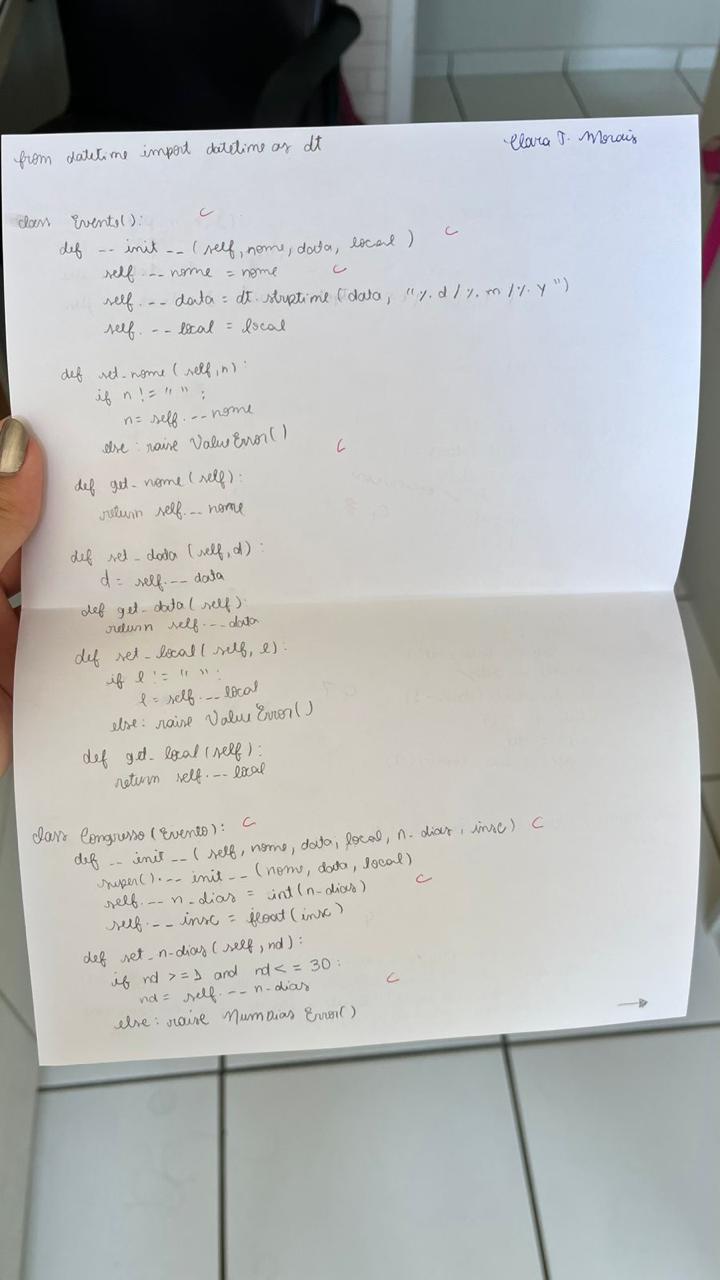 from datetime import datetime as dt
Clara T. Morais
class Evento():
C
def __init__(self, nome, data, local)
C
self.__nome = nome
C
self.__data = dt.strptime(data, "%d/%m/%y")
self.__local = local
def set_nome(self, n):
if n != "":
n = self.__nome
else: raise ValueError()
C
def get_nome(self):
return self.__nome
def set_data(self, d):
d = self.__data
def get_data(self):
return self.__data
def set_local(self, l):
if l != "":
l = self.__local
else: raise ValueError()
def get_local(self):
return self.__local
class Congresso(Evento):
C
def __init__(self, nome, data, local, n_dias, insc)
C
super().__init__(nome, data, local)
self.__n_dias = int(n_dias)
C
self.__insc = float(insc)
def set_n_dias(self, nd):
if nd >= 1 and nd <= 30:
nd = self.__n_dias
C
else: raise NumDiasError()
→